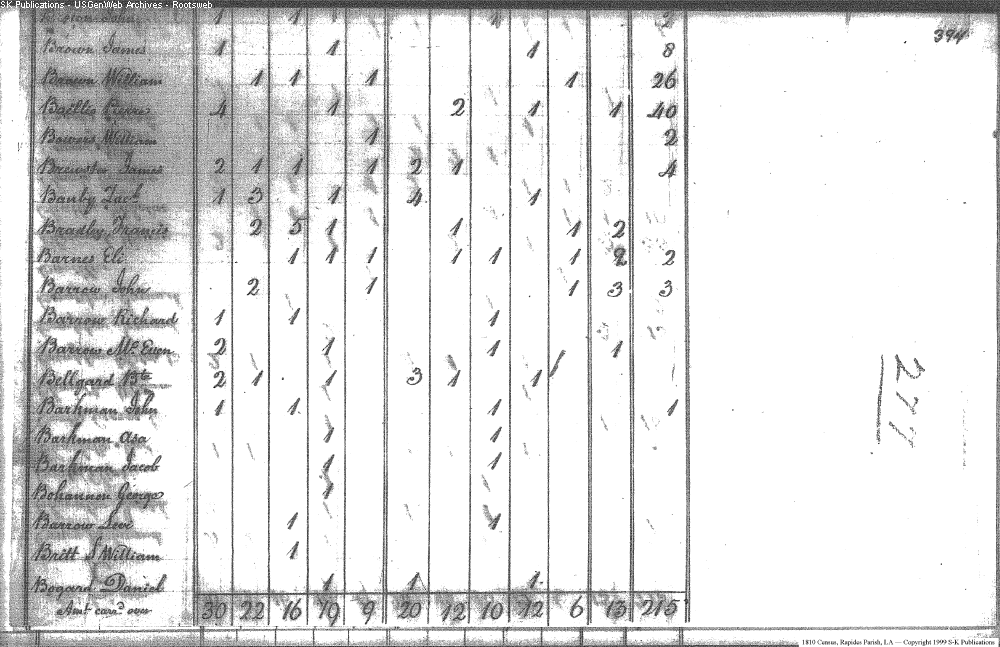 SK Publications - USGenWeb Archives - Rootsweb
394
John 1 1 1 2
Brown James 1 1 1 8
Brown William 1 1 1 1 26
Baillio Pierre 4 1 2 1 1 40
Bowers William 1 2
Brewster James 2 1 1 1 2 1 4
Banby Zach 1 3 1 4 1
Bradley Francis 2 5 1 1 1 2
Barnes Eli 1 1 1 1 1 1 2 2
Barrow John 2 1 1 3 3
Barrow Richard 1 1 1
Barrow McEuen 2 1 1 1
Bellgard Bte 2 1 1 3 1 1
Barkman John 1 1 1 1
Barkman Asa 1 1
Barkman Jacob 1 1
Bohannon George 1
Barrow Levi 1 1
Britt S William 1
Bogard Daniel 1 1 1
Amt carrd over 30 22 16 19 9 20 12 10 12 6 13 215
277
1810 Census, Rapides Parish, LA — Copyright 1999 S-K Publications